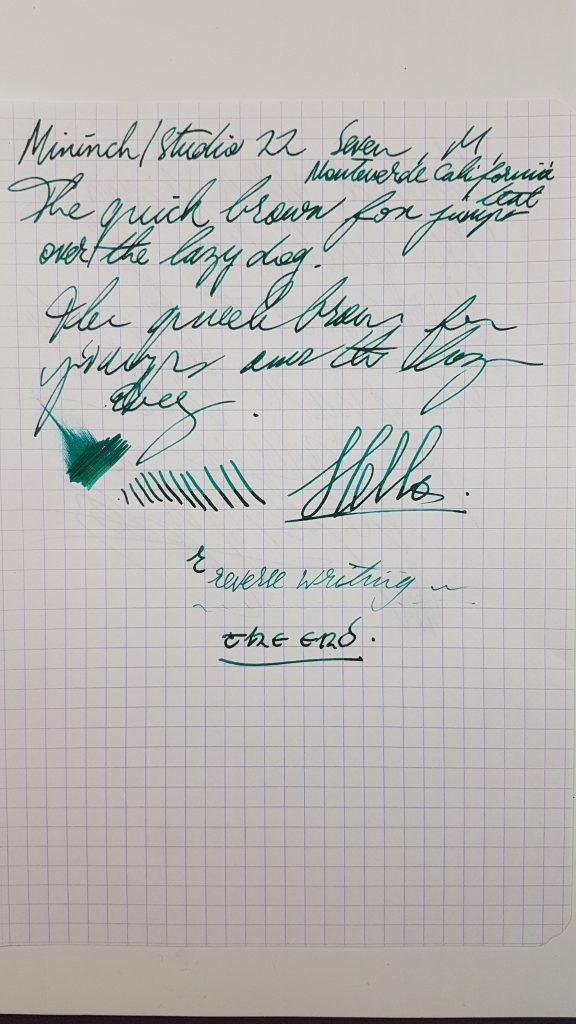 Mininch/Studio 22 Seven, M,
Monteverde California
teal
The quick brown fox jumps
over the lazy dog.
The quick brown fox
jumps over the lazy
dog.
Hello.
r reverse writing ~
the end.